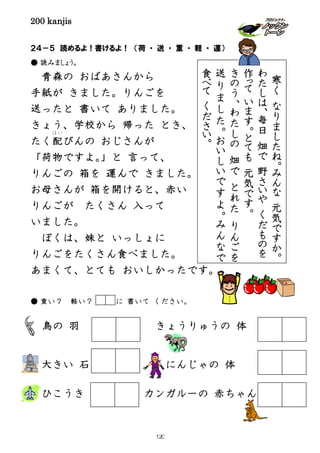 200 kanjis
プロジェクト
２４－５ 読めるよ！書けるよ！（ 荷 ・ 送 ・ 重 ・ 軽 ・ 運 ）
● 読みましょう。
青森の おばあさんから
手紙が きました。りんごを
送ったと 書いて ありました。
きょう、学校から 帰った とき、
はい
たく配びんの おじさんが
「荷物ですよ。」と 言って、
りんごの 箱を 運んで きました。
お母さんが 箱を開けると、赤い
りんごが たくさん 入って
いました。
ぼくは、妹と いっしょに
りんごをたくさん食べました。
あまくて、とても おいしかったです。
寒く なりましたね。みんな 元気ですか。
わたしは、毎日 畑で 野さいや くだものを
作って います。とても 元気です。
きのう、わたしの 畑で とれた りんごを
送りました。おいしいですよ。みんなで
食べて ください。
● 重い？ 軽い？ に 書いて ください。
鳥の 羽
きょうりゅうの 体
大きい 石
にんじゃの 体
ひこうき
カンガルーの 赤ちゃん
120